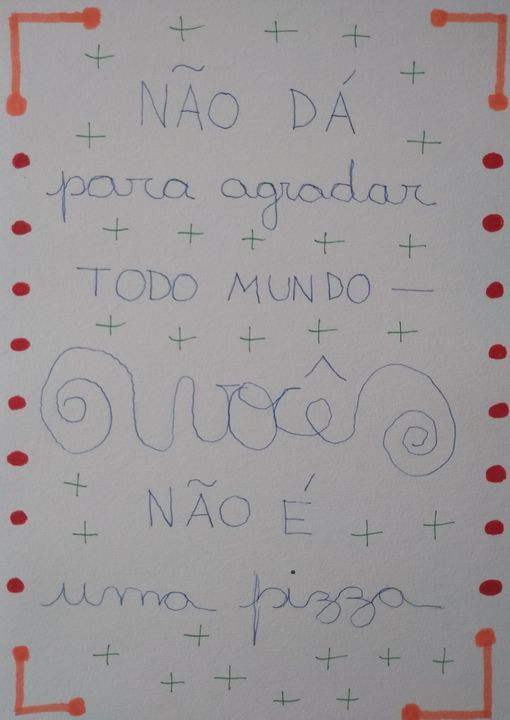 NÃO DÁ
para agradar
TODO MUNDO —
VOCÊ
NÃO É
uma pizza